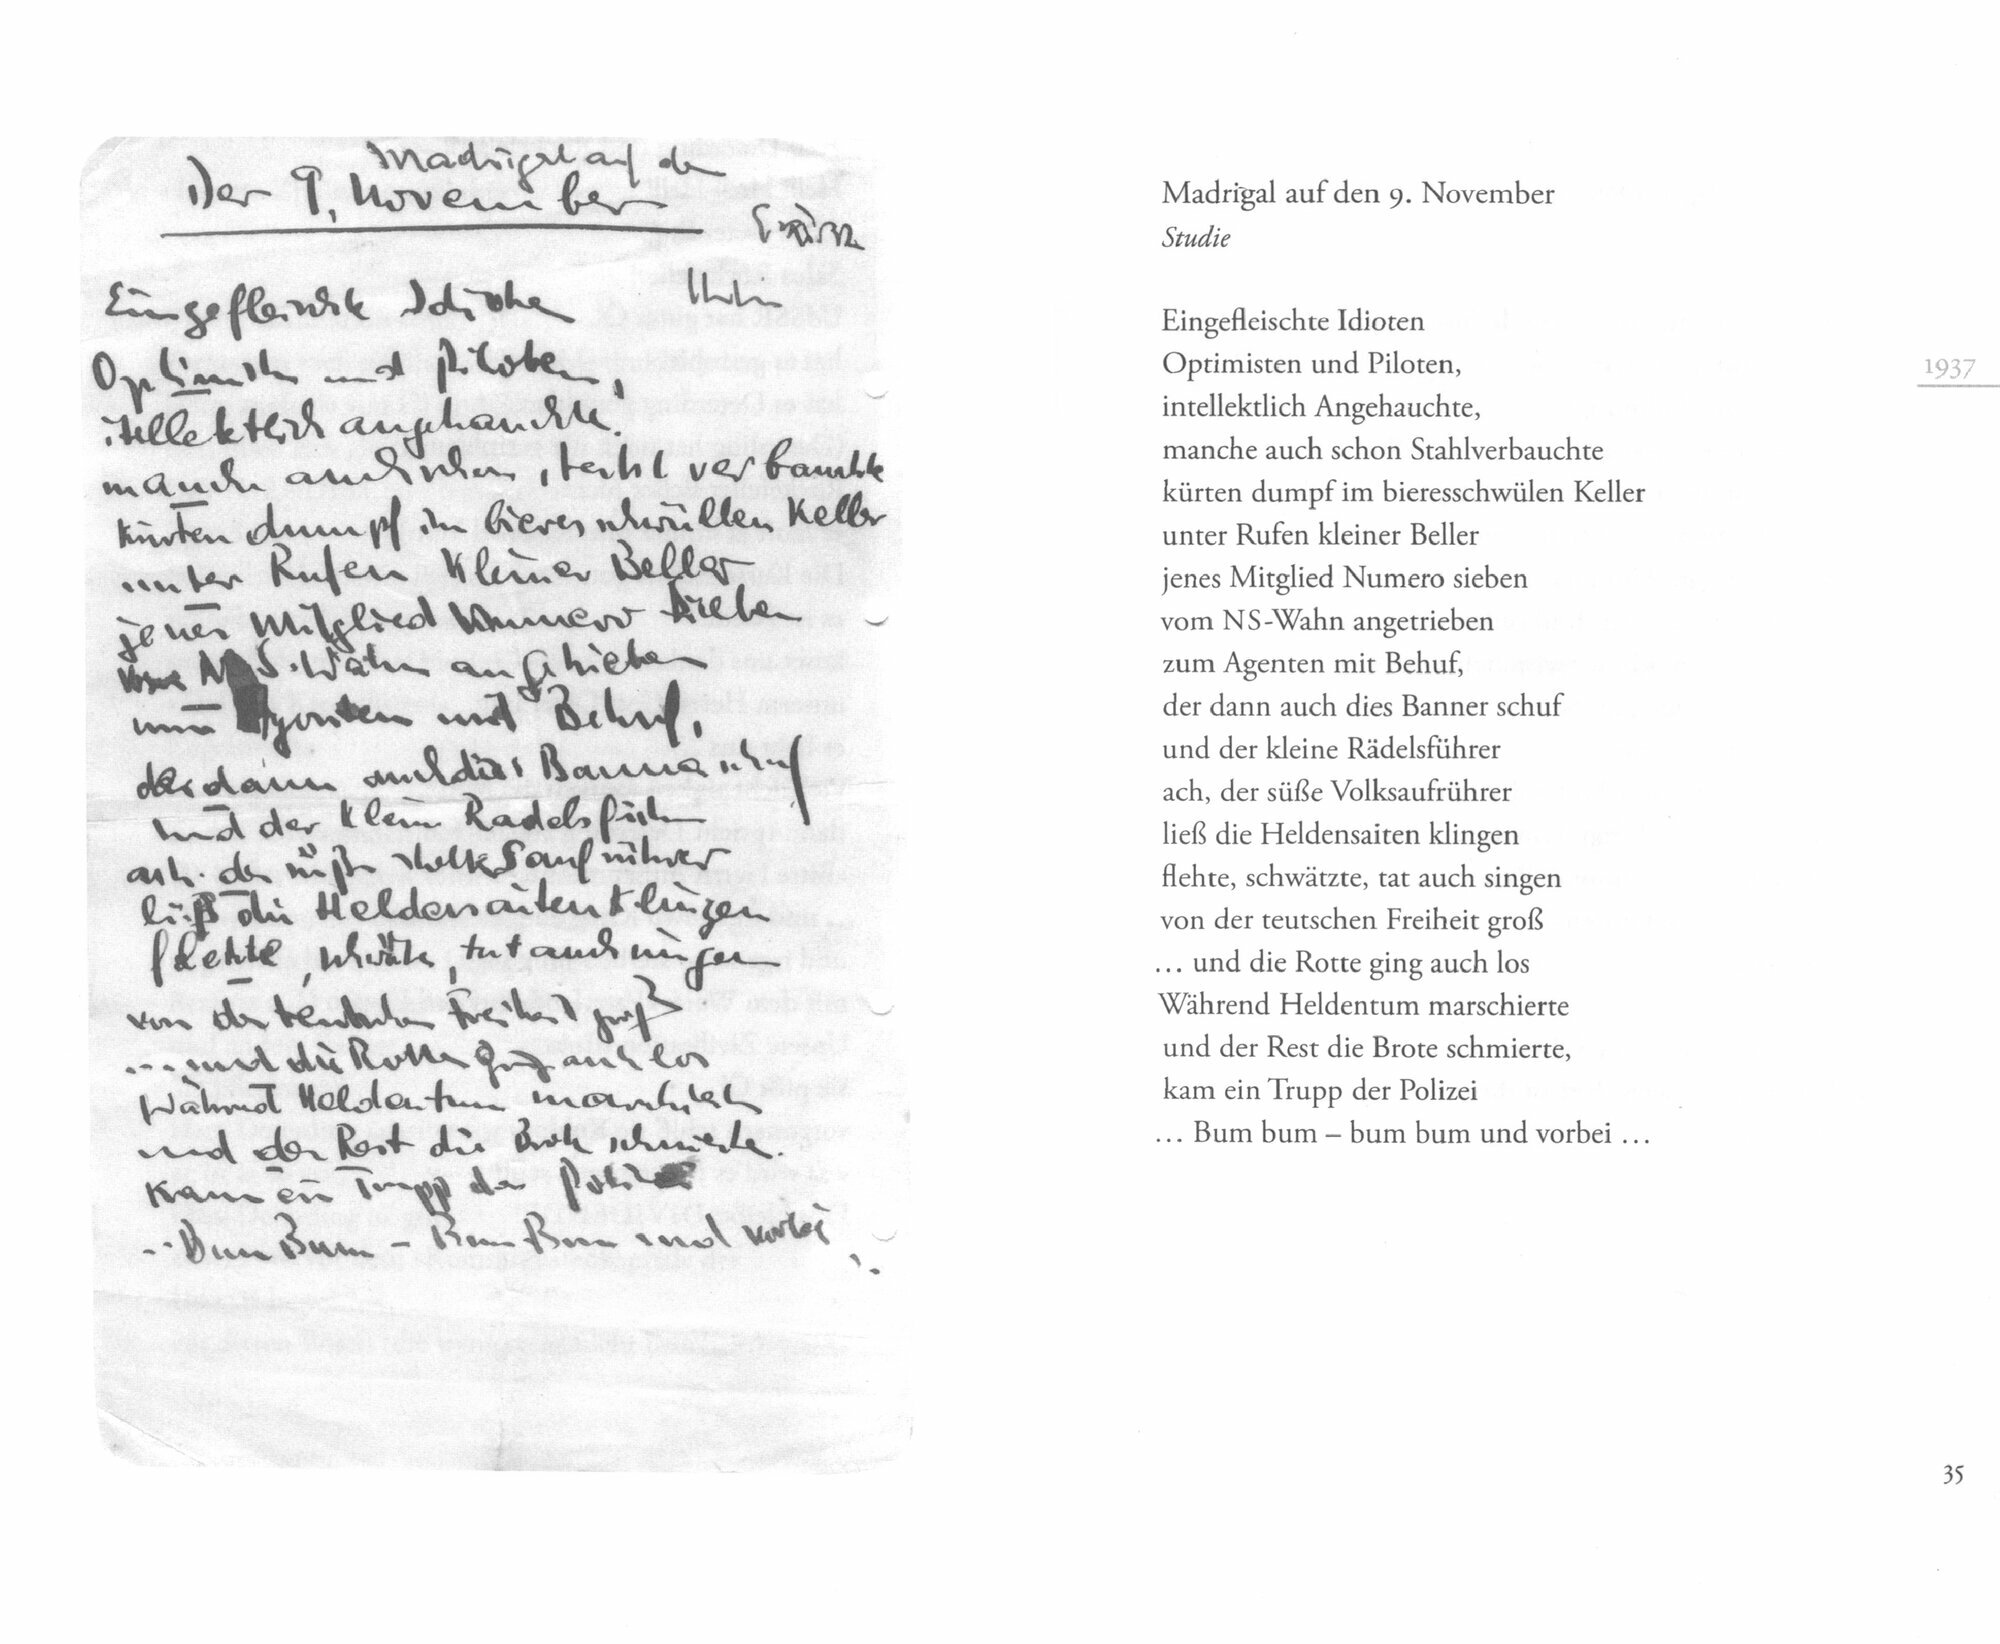 Madrigal auf den
Der 9. November
Eingefleischte Idioten
Optimisten und Piloten,
itellektlich angehauchte,
manche auch schon stahlverbauchte
kürten dumpf im bieresschwüllen Keller
unter Rufen kleiner Beller
jenes Mitglied Numero sieben
vom NS-Wahn angetrieben
zum Agenten mit Behuf,
der dann auch dies Banner schuf
und der kleine Rädelsführer
ach, der süße Volksaufrührer
ließ die Heldensaiten klingen
flehte, schwätzte, tat auch singen
von der teutschen Freiheit groß
... und die Rotte ging auch los
Während Heldentum marschierte
und der Rest die Brote schmierte.
kam ein Trupp der Polizei
... Bum Bum – Bum Bum und vorbei ...
Madrigal auf den 9. November
Studie
Eingefleischte Idioten
Optimisten und Piloten,
intellektlich Angehauchte,
manche auch schon Stahlverbauchte
kürten dumpf im bieresschwülen Keller
unter Rufen kleiner Beller
jenes Mitglied Numero sieben
vom NS-Wahn angetrieben
zum Agenten mit Behuf,
der dann auch dies Banner schuf
und der kleine Rädelsführer
ach, der süße Volksaufrührer
ließ die Heldensaiten klingen
flehte, schwätzte, tat auch singen
von der teutschen Freiheit groß
... und die Rotte ging auch los
Während Heldentum marschierte
und der Rest die Brote schmierte,
kam ein Trupp der Polizei
... Bum bum – bum bum und vorbei ...
1937
35